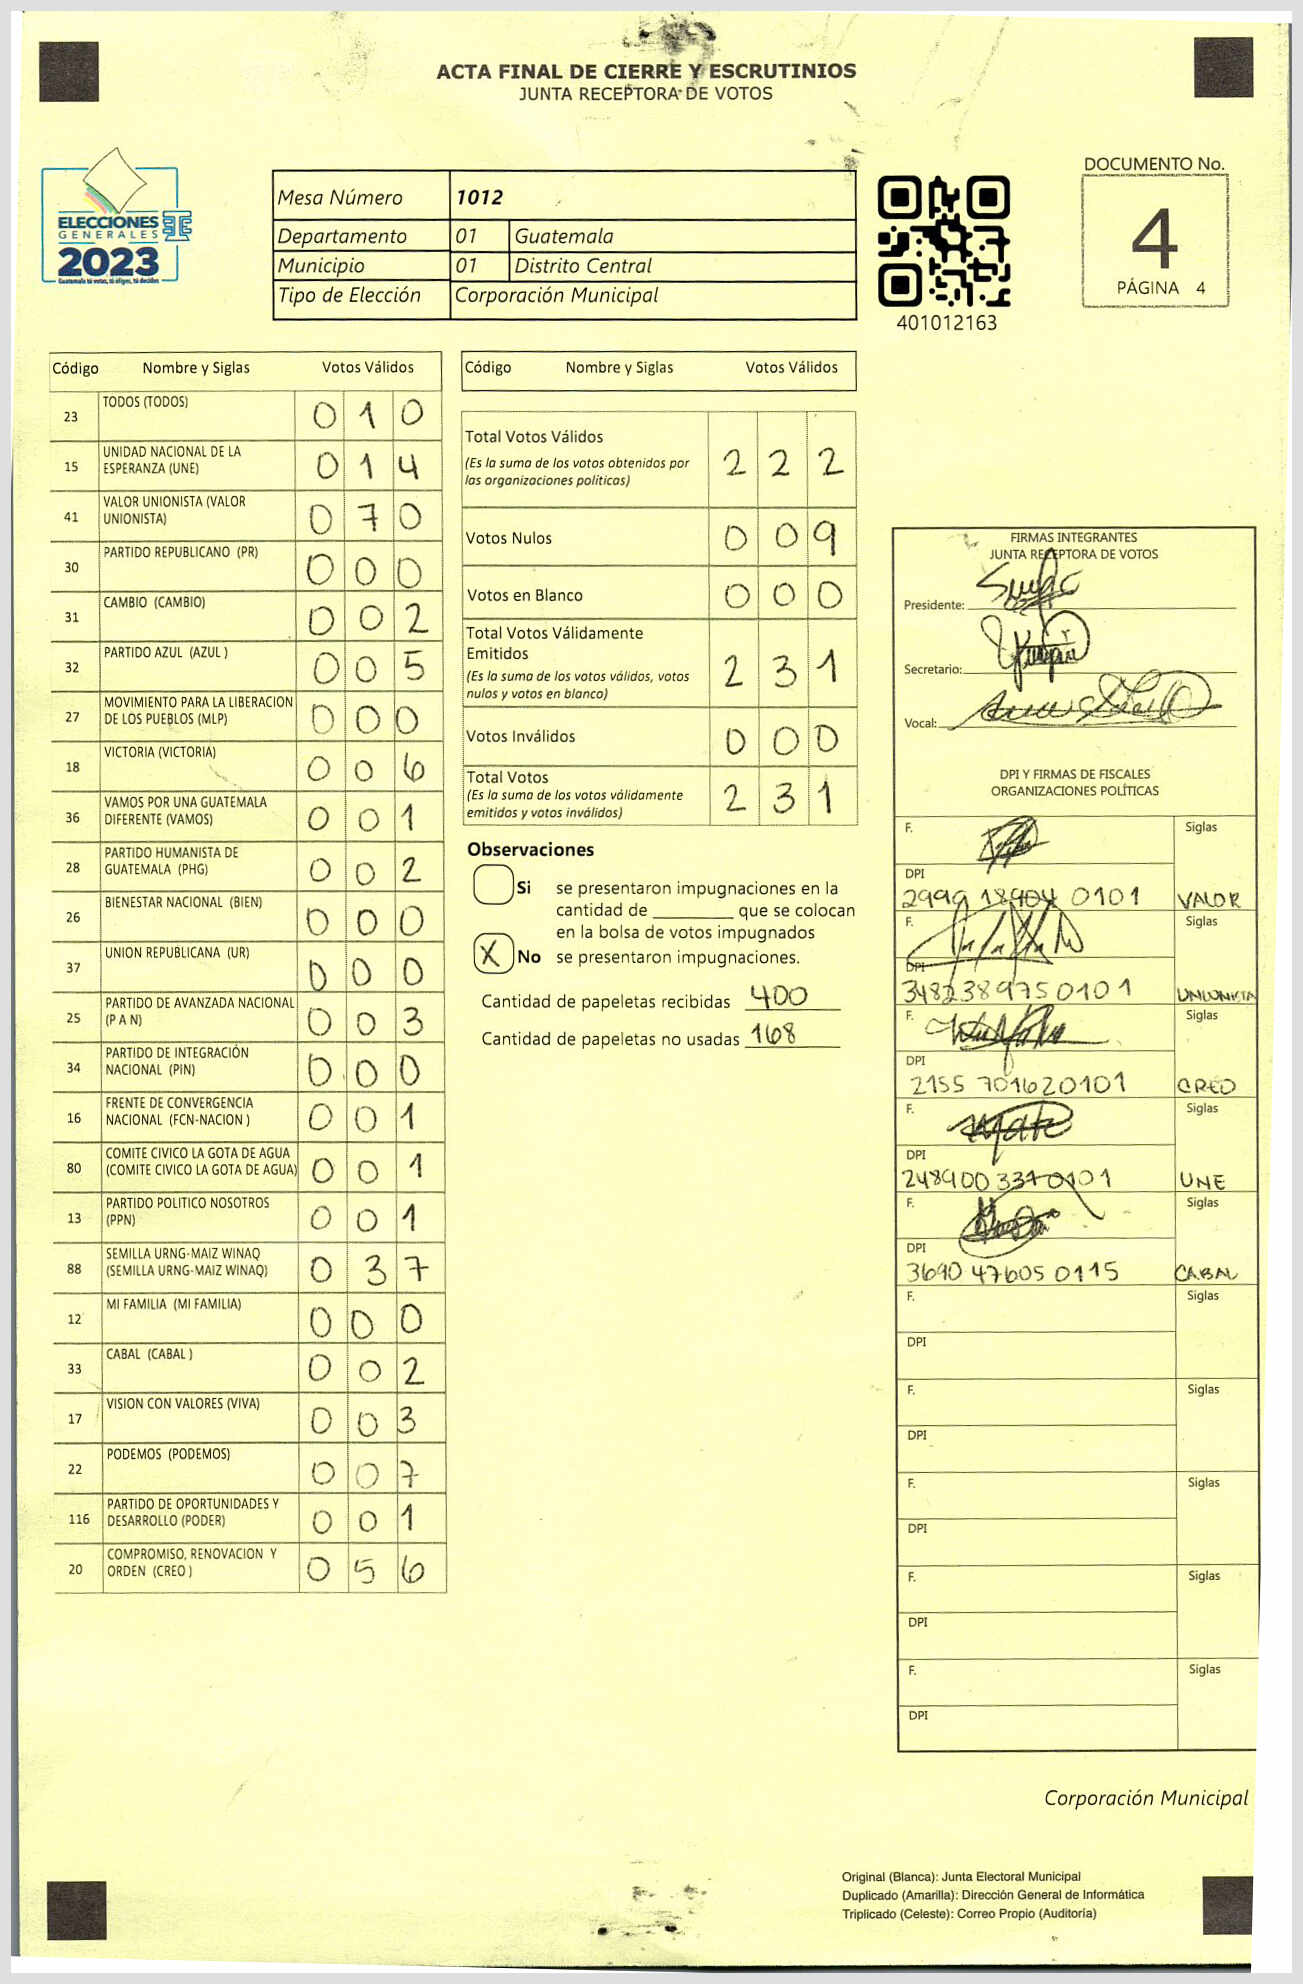 ACTA FINAL DE CIERRE Y ESCRUTINIOS
JUNTA RECEPTORA DE VOTOS
ELECCIONES
GENERALES
2023
Guatemala tú votas, tú eliges, tú decides
Mesa Número 1012
Departamento 01 Guatemala
Municipio 01 Distrito Central
Tipo de Elección Corporación Municipal
401012163
DOCUMENTO No.
4
PÁGINA 4
Código Nombre y Siglas Votos Válidos
23 TODOS (TODOS) 0 1 0
15 UNIDAD NACIONAL DE LA ESPERANZA (UNE) 0 1 4
41 VALOR UNIONISTA (VALOR UNIONISTA) 0 7 0
30 PARTIDO REPUBLICANO (PR) 0 0 0
31 CAMBIO (CAMBIO) 0 0 2
32 PARTIDO AZUL (AZUL ) 0 0 5
27 MOVIMIENTO PARA LA LIBERACION DE LOS PUEBLOS (MLP) 0 0 0
18 VICTORIA (VICTORIA) 0 0 6
36 VAMOS POR UNA GUATEMALA DIFERENTE (VAMOS) 0 0 1
28 PARTIDO HUMANISTA DE GUATEMALA (PHG) 0 0 2
26 BIENESTAR NACIONAL (BIEN) 0 0 0
37 UNION REPUBLICANA (UR) 0 0 0
25 PARTIDO DE AVANZADA NACIONAL (P A N) 0 0 3
34 PARTIDO DE INTEGRACIÓN NACIONAL (PIN) 0 0 0
16 FRENTE DE CONVERGENCIA NACIONAL (FCN-NACION ) 0 0 1
80 COMITE CIVICO LA GOTA DE AGUA (COMITE CIVICO LA GOTA DE AGUA) 0 0 1
13 PARTIDO POLITICO NOSOTROS (PPN) 0 0 1
88 SEMILLA URNG-MAIZ WINAQ (SEMILLA URNG-MAIZ WINAQ) 0 3 7
12 MI FAMILIA (MI FAMILIA) 0 0 0
33 CABAL (CABAL ) 0 0 2
17 VISION CON VALORES (VIVA) 0 0 3
22 PODEMOS (PODEMOS) 0 0 7
116 PARTIDO DE OPORTUNIDADES Y DESARROLLO (PODER) 0 0 1
20 COMPROMISO, RENOVACION Y ORDEN (CREO ) 0 5 6
Código Nombre y Siglas Votos Válidos
Total Votos Válidos 2 2 2
(Es la suma de los votos obtenidos por
las organizaciones políticas)
Votos Nulos 0 0 9
Votos en Blanco 0 0 0
Total Votos Válidamente
Emitidos 2 3 1
(Es la suma de los votos válidos, votos
nulos y votos en blanco)
Votos Inválidos 0 0 0
Total Votos 2 3 1
(Es la suma de los votos válidamente
emitidos y votos inválidos)
Observaciones
Si se presentaron impugnaciones en la
cantidad de ________ que se colocan
en la bolsa de votos impugnados
X No se presentaron impugnaciones.
Cantidad de papeletas recibidas 400
Cantidad de papeletas no usadas 168
FIRMAS INTEGRANTES
JUNTA RECEPTORA DE VOTOS
Presidente:
Secretario:
Vocal:
DPI Y FIRMAS DE FISCALES
ORGANIZACIONES POLÍTICAS
F. Siglas
DPI
2999 18904 0101 VALOR
F. Siglas
DPI
3482389750101 UNIONISTA
F. Siglas
DPI
2155 701620101 CREO
F. Siglas
DPI
248900 3370101 UNE
F. Siglas
DPI
3690 47605 0115 CABAL
F. Siglas
DPI
F. Siglas
DPI
F. Siglas
DPI
F. Siglas
DPI
F. Siglas
DPI
Corporación Municipal
Original (Blanca): Junta Electoral Municipal
Duplicado (Amarilla): Dirección General de Informática
Triplicado (Celeste): Correo Propio (Auditoría)